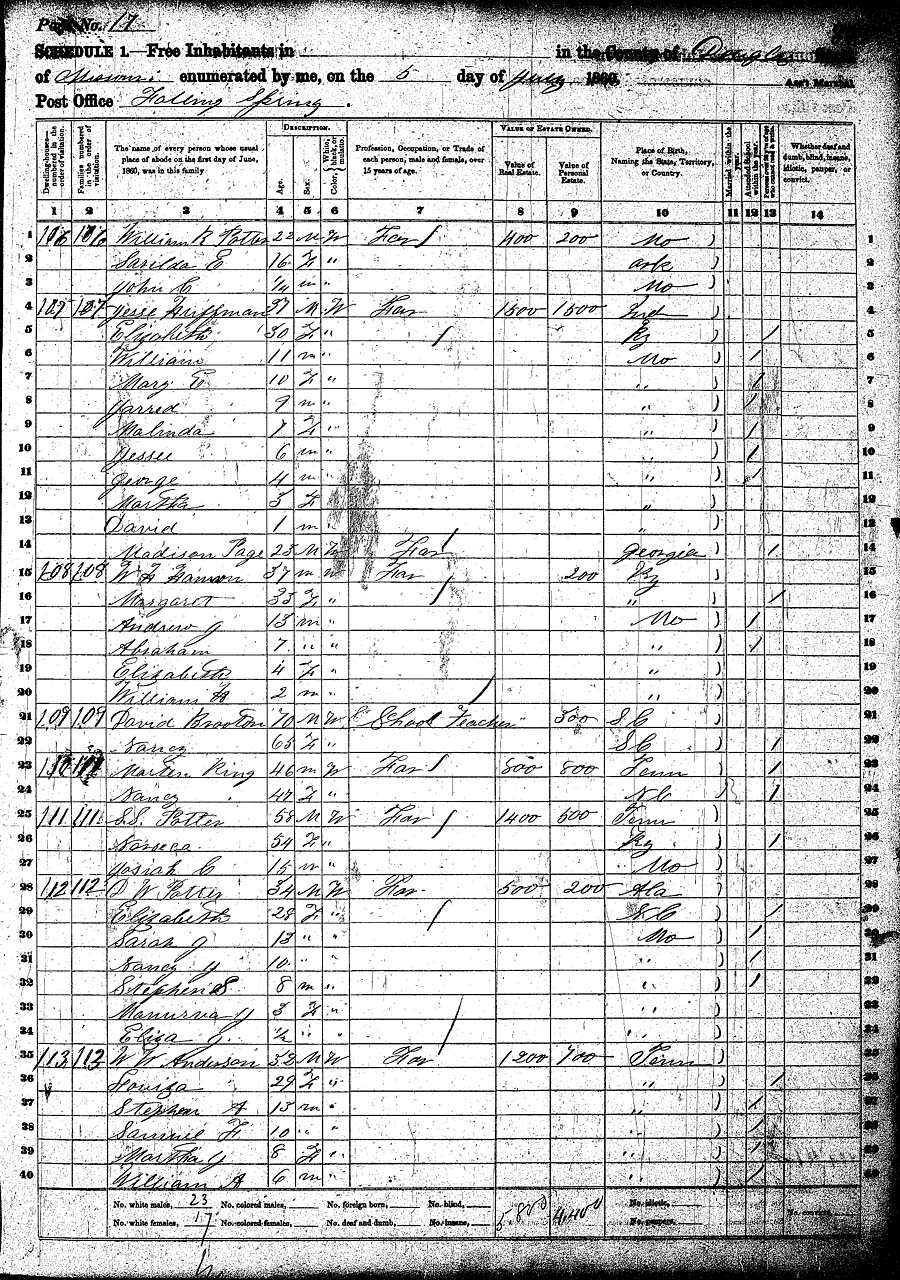 Page No. 17
SCHEDULE 1.—Free Inhabitants in in the County of Douglas State
of Missouri enumerated by me, on the 5 day of July 1860. Ass't Marshal
Post Office Falling Spring.
Dwelling-houses numbered in the order of visitation. Families numbered in the order of visitation. The name of every person whose usual place of abode on the first day of June, 1860, was in this family DESCRIPTION. Age. Sex. Color, White, black, or mulatto. Profession, Occupation, or Trade of each person, male and female, over 15 years of age. VALUE OF ESTATE OWNED. Value of Real Estate. Value of Personal Estate. Place of Birth, Naming the State, Territory, or Country. Married within the year. Attended School within the year. Whether deaf and dumb, blind, insane, idiotic, pauper, or convict.
1 2 3 4 5 6 7 8 9 10 11 12 13 14
1 106 106 William R Potter 22 M W Far / 400 200 Mo ) 1
2 Sarilda E 16 F " Ark ) 2
3 John C m " Mo ) 3
4 107 107 Jesse Huffman 37 M W Far 1500 1500 Ind ) 4
5 Elizabeth 30 F " / Ky / 5
6 William 11 m " Mo ) / 6
7 Mary E 10 F " " ) / 7
8 Jarred 9 m " " ) / 8
9 Malinda 7 F " " ) / 9
10 Jessee 6 m " " ) / 10
11 George 4 m " " ) / 11
12 Martha 3 F " " ) 12
13 David 1 m " " 13
14 Madison Page 25 M W Far / Georgia ) / 14
15 108 108 37 m w Far 200 Ky ) 15
16 Margaret 33 F " / " / 16
17 Andrew J 13 m " Mo ) / 17
18 Abraham 7 " " " ) / 18
19 Elizabeth 4 F " " ) 19
20 William H 2 m " / " ) 20
21 109 109 David 70 M W School Teacher 300 S C ) 21
22 Nancy 65 F " S C ) / 22
23 110 Martin King 46 m W Far / 800 800 Tenn ) / 23
24 Nancy 47 F " N C / 24
25 111 111 S.S. Potter 58 M W Far / 1400 500 Tenn ) 25
26 54 F " Ky ) / 26
27 Josiah C 15 m " Mo ) 27
28 112 112 W Potter 34 M W Far 500 200 Ala ) 28
29 Elizabeth 28 F " / N C ) / 29
30 Sarah J 13 " " Mo ) / 30
31 Nancy Y 10 " " " ) / 31
32 Stephen S 8 m " " ) / 32
33 Manurva J 3 F " " ) 33
34 Eliza J ½ " " / " ) 34
35 113 112 W W Anderson 32 M W Far 1200 700 Tenn ) 35
36 Louiza 29 F " " ) / 36
37 Stephen A 13 m " " ) / 37
38 Samuel F 10 " " " ) / 38
39 Martha J 8 F " " ) / 39
40 William A 6 m " " ) / 40
No. white males, 23 No. colored males, No. foreign born, No. blind, 5.800 4.400 No. idiotic, No. convicts,
No. white females, 17 No. colored females, No. deaf and dumb, No. insane, No. paupers,